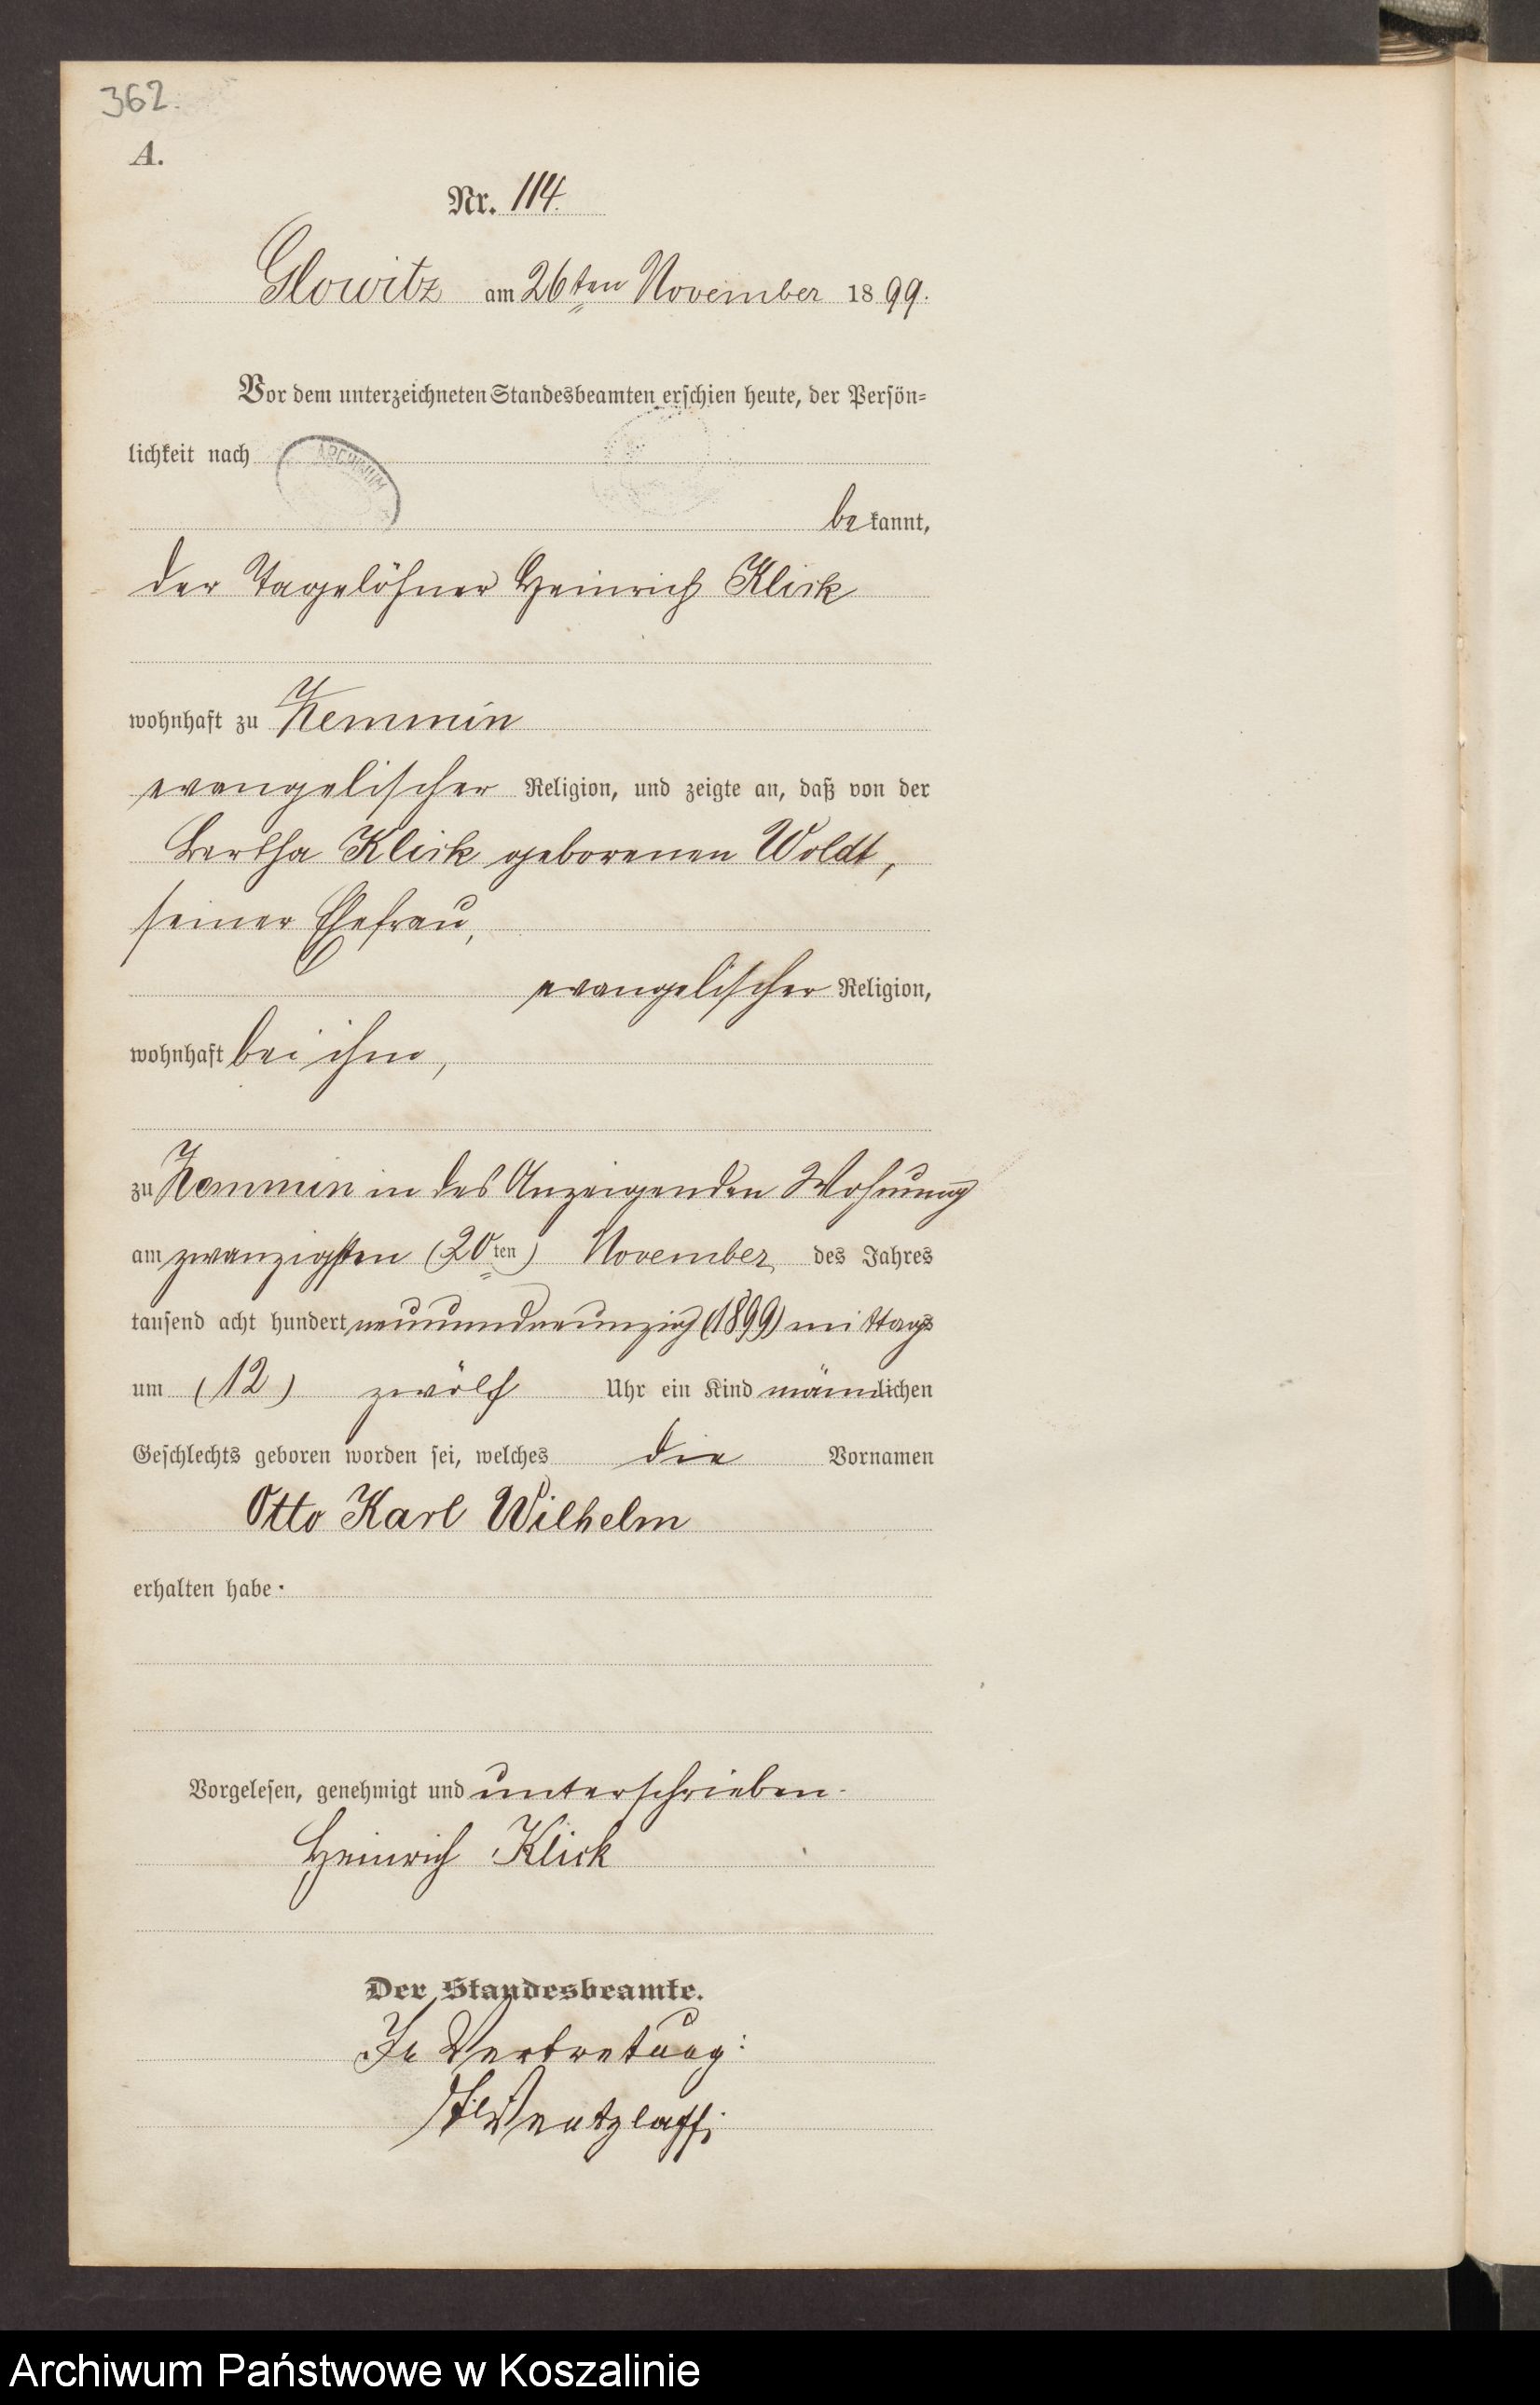 362.
A.
Nr. 114.
Glowitz am 26ten November 1899.
Vor dem unterzeichneten Standesbeamten erschien heute, der Persön-
lichkeit nach
ARCHIWUM
bekannt,
der Tagelöhner Heinrich Klick
wohnhaft zu Zemmin
evangelischer Religion, und zeigte an, daß von der
Bertha Klick geborenen Woldt,
seiner Ehefrau,
evangelischer Religion,
wohnhaft bei ihm,
zu Zemmin in des Anzeigenden Wohnung
am zwanzigsten (20ten) November des Jahres
tausend acht hundert neunundneunzig (1899) mittags
um (12) zwölf Uhr ein Kind männlichen
Geschlechts geboren worden sei, welches die Vornamen
Otto Karl Wilhelm
erhalten habe.
Vorgelesen, genehmigt und unterschrieben.
Heinrich Klick
Der Standesbeamte.
In Vertretung:
Wentzlaff.
Archiwum Państwowe w Koszalinie